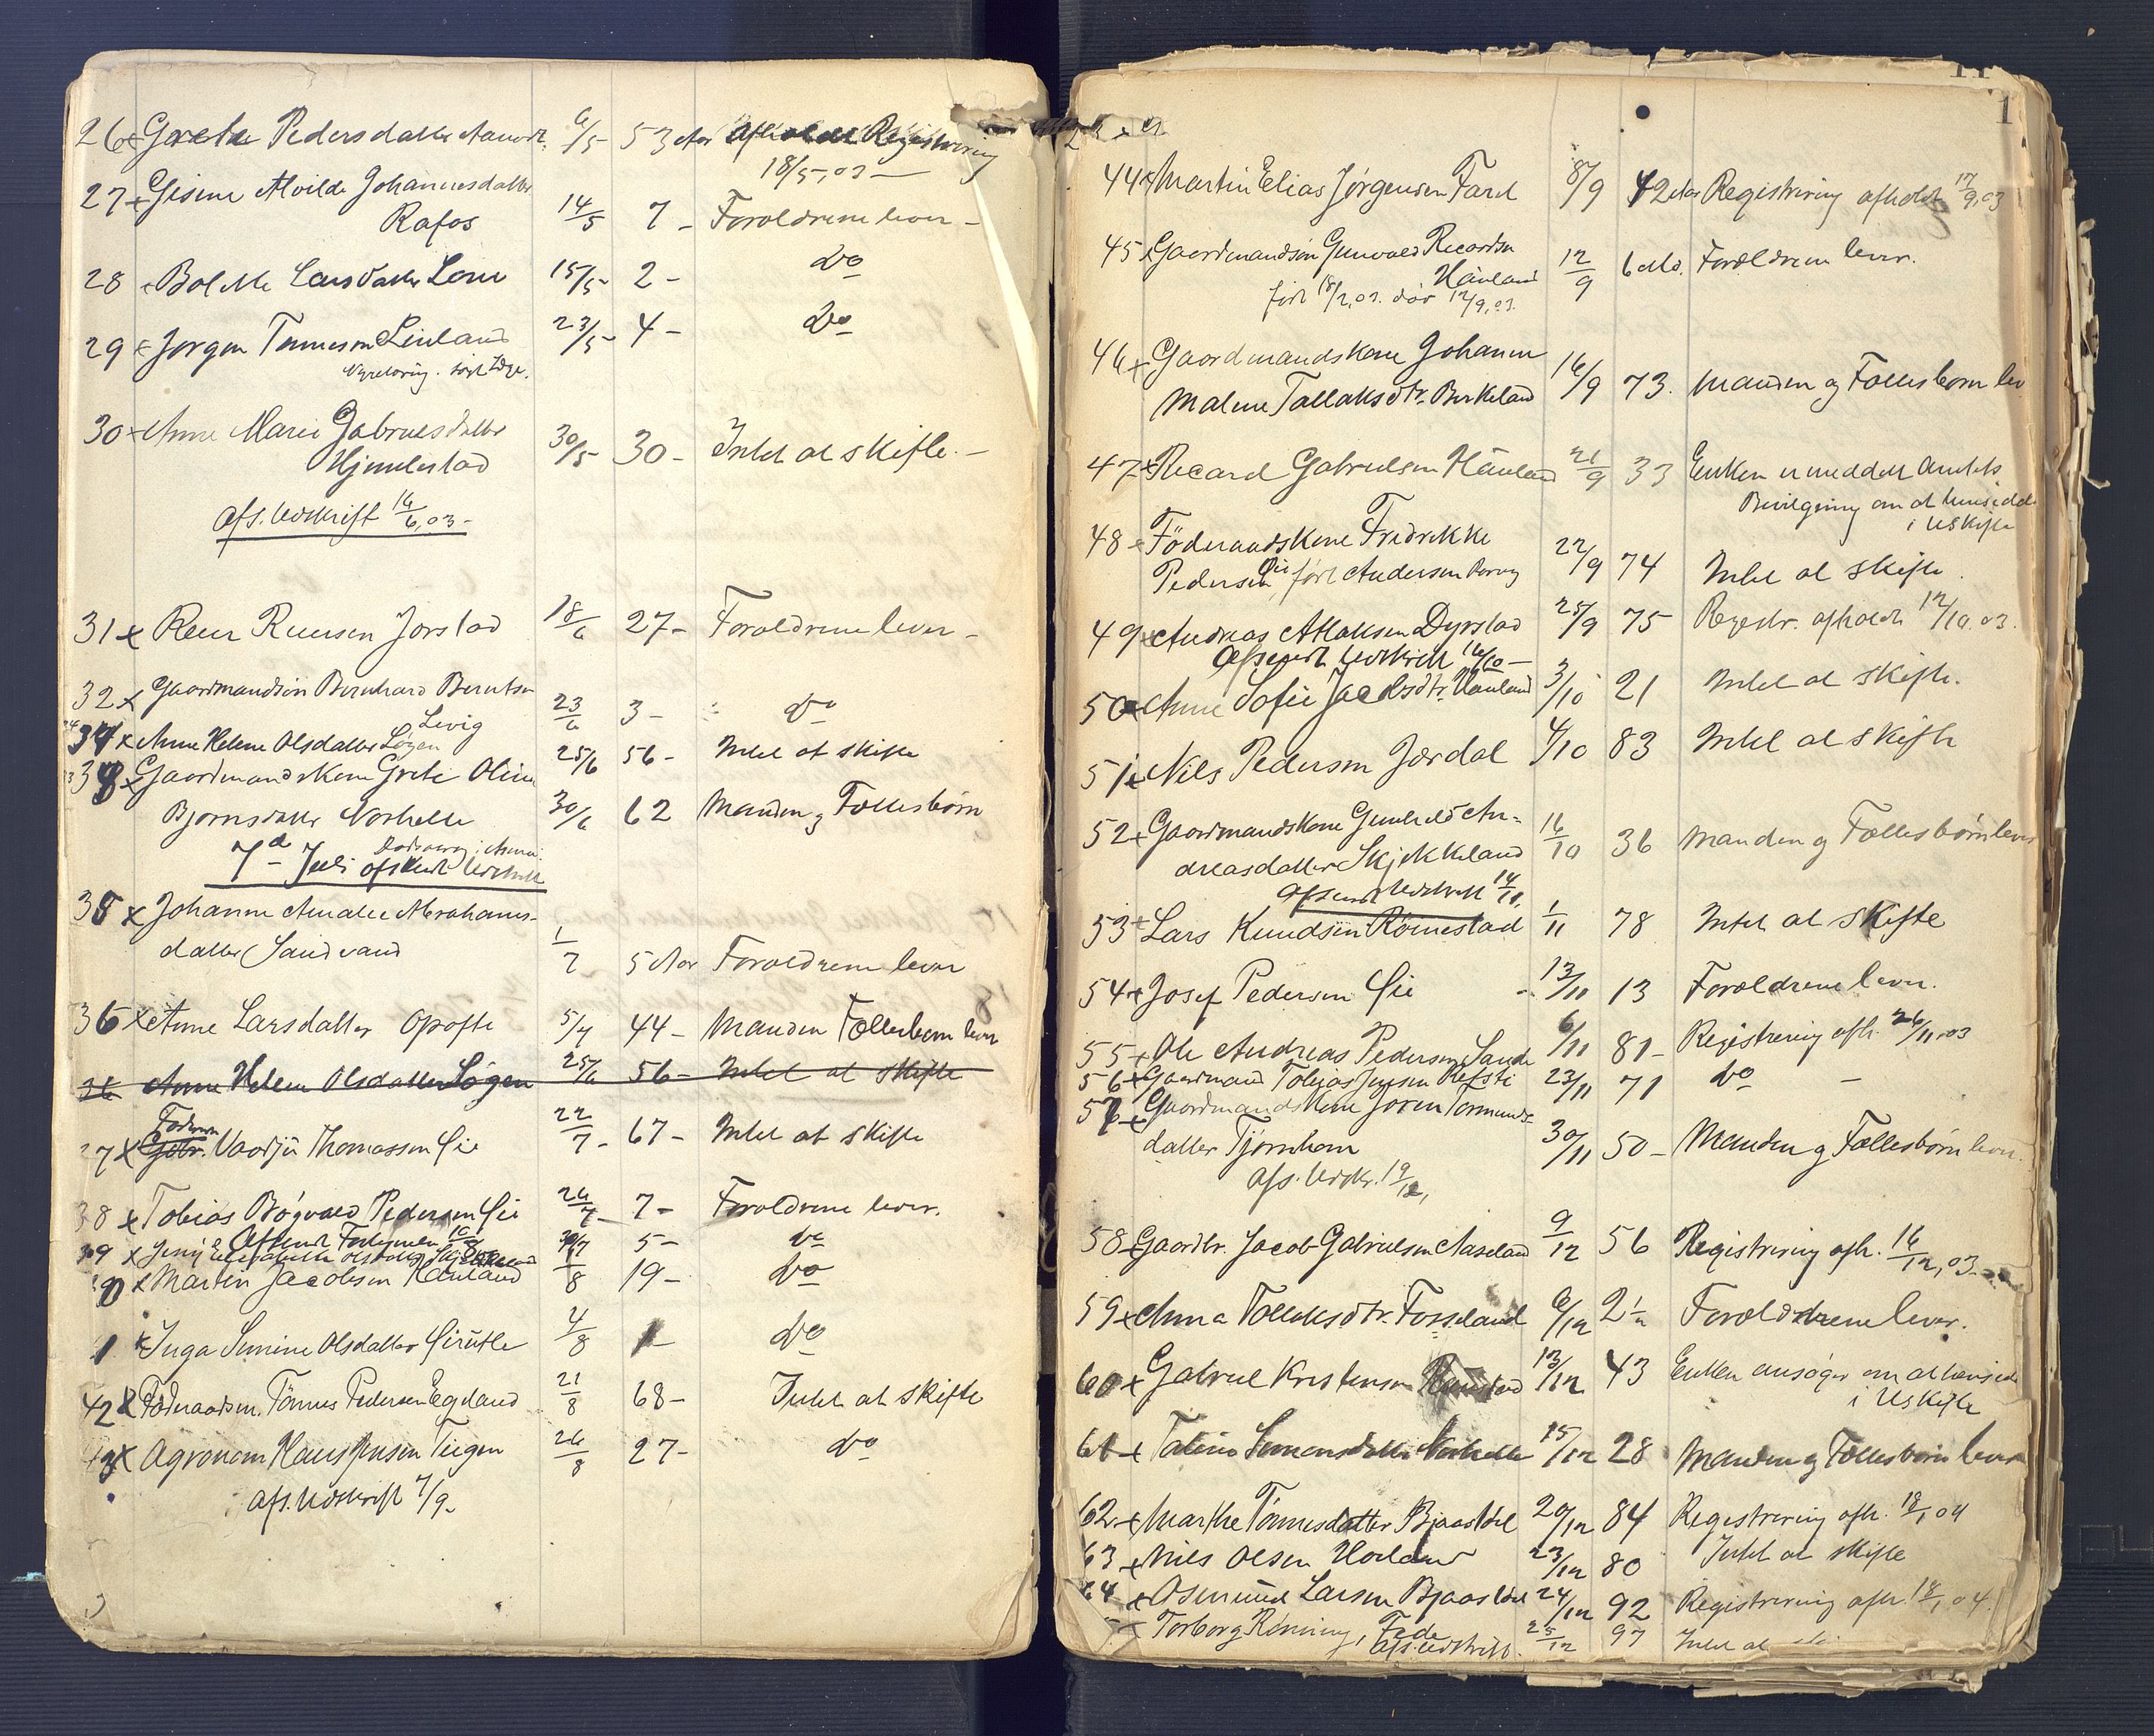 26 x Grete Pedersdatter 6/5 53 Aar Afholdt Registrering
18/5,03 —
27 x Gisine Alvilde Johannesdatter
Rafos 14/5 7 - Foræld­rene lever -
28 x Bolette Larsdatter Lone 15/5 2 - do
29 x Jørgen Tønnesen Linland 23/5 4 - do
30 x Anne Marie Gabrielsdatter
Hjemlestad 30/5 30 - Intet at skifte. -
Afs. Udskrift 16/6,03 -
31 x Reier Reiersen Jørstad 18/6 27 - Forældrene lever -
32 x Gaardmandsøn Bernhard Berntsen
Levig 23/6 3 - do
34 x Anne Helene Olsdatter Løgen 25/6 56 - Intet at skifte
33 x Gaardmandskone Grete Oline
Bjørnsdatter Norhelle 30/6 62 Manden og Fællesbørn
7d Juli afsendt Udskrift
35 x Johanne Amalie Abrahams-
datter Sandvand 1/7 5 Aar Forældrene lever
36 x Anne Larsdatter Opofte 5/7 44 - Manden Fællesbørn lever
36 Anne Helene Olsdatter Løgen 25/6 56 - Intet at skifte
37 x Gbr. Vaardjü Thomassen Øie 22/7 - 67 - Intet at skifte
38 x Tobias Bógvald Pedersen Øie 26/7 - 7 - Forældrene lever.
39 x Jenny Elisabeth Olsdatter 5 - do
40 x Martin Jacobsen Hanland 1/8 19 - do
41 x Inga Simine Olsdatter 4/8 1 - do
42 x Føderaadsm. Tønnes Pedersen Egeland 21/8 68 - Intet at skifte
43 x Agronom Hans Jensen Tiegen 26/8 27 - do
Afs. Udskrift 7/9 -
44 x Martin Elias Jørgensen Fard 8/9 42 Aar Registrering afholdt 17/9,03
45 x Gaardmandsøn Gunvald Recardsen
Hånland 12/9 6 Md. Forældrene lever.
født 18/2,03. død 12/9,03.
46 x Gaardmandskone Johanne
Maline Tallaksdtr. Birkeland 16/9 73. Manden og Fællesbørn lev
47 x Recard Gabrielsen Hånland 21/9 33 Enken er meddelt Amtets
Bevilgning om at hensidde
i Uskifte
48 x Føderaadskone Fredrikke
Pedersen Øie, født Andersen 22/9 74 Intet at skifte.
49 x Andreas Atlaksen Dyrstad 25/9 75 Registr. afholdt 12/10.03.
Afsendt Udskrift 16/10 -
50 x Anne Sofie Jacobsdtr. Hanland 3/10 21 Intet at skifte.
51 x Nils Pedersen Jerdal 4/10 83 Intet at skifte
52 x Gaardmandskone Gunhild An-
dreasdatter Skjekkeland 16/10 36 Manden og Fællesbørn lever
Afsendt Udskrift
53 x Lars Knudsen Rørnestad 1/11 78 Intet at skifte
54 x Josef Pedersen Øie 13/11 13 Forældrene lever.
55 x Ole Andreas Pedersen Sande 6/11 81 - Registrering afh. 26/11,03
56 x Gaardmand Tobias Jensen Refsti 23/11 71 do —
57 x Gaardmandskone Joren Tormunds-
datter Tjørnhom 30/11 50 - Manden og Fællesbørn lever.
Afs. Udskr. 19/12,
58 x Gaardbr. Jacob Gabrielsen Aaseland 9/12 56 Registrering afh. 16/12,03 -
59 x Anna Tallaksdtr. Fosseland 6/12 2 1/2 Forældrene lever.
60 x Gabriel Kristensen 13/12 43 Enken ansøger om at hensidde
i Uskifte
61 x Taline Simonsdatter Norhelle 15/12 28 Manden og Fællesbørn lever
62 x Marthe Tønnesdatter Bjaastøl 20/12 84 Registrering afh. 18/1,04
63 x Nils Olsen Horland 23/12 80 Intet at skifte
64 x Osmund Larsen Bjaastøl 24/12 92 Registrering afh. 18/1,04.
Torborg Rønning, Fede 25/12 97 Intet at
Afs. Udskrift.